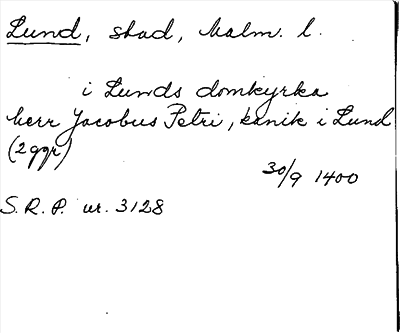 Lund, stad, Malm. l.
i Lunds domkyrka
herr Jacobus Petri, kanik i Lund
(2 ggr)
30/9 1400
S.R.P. nr. 3128